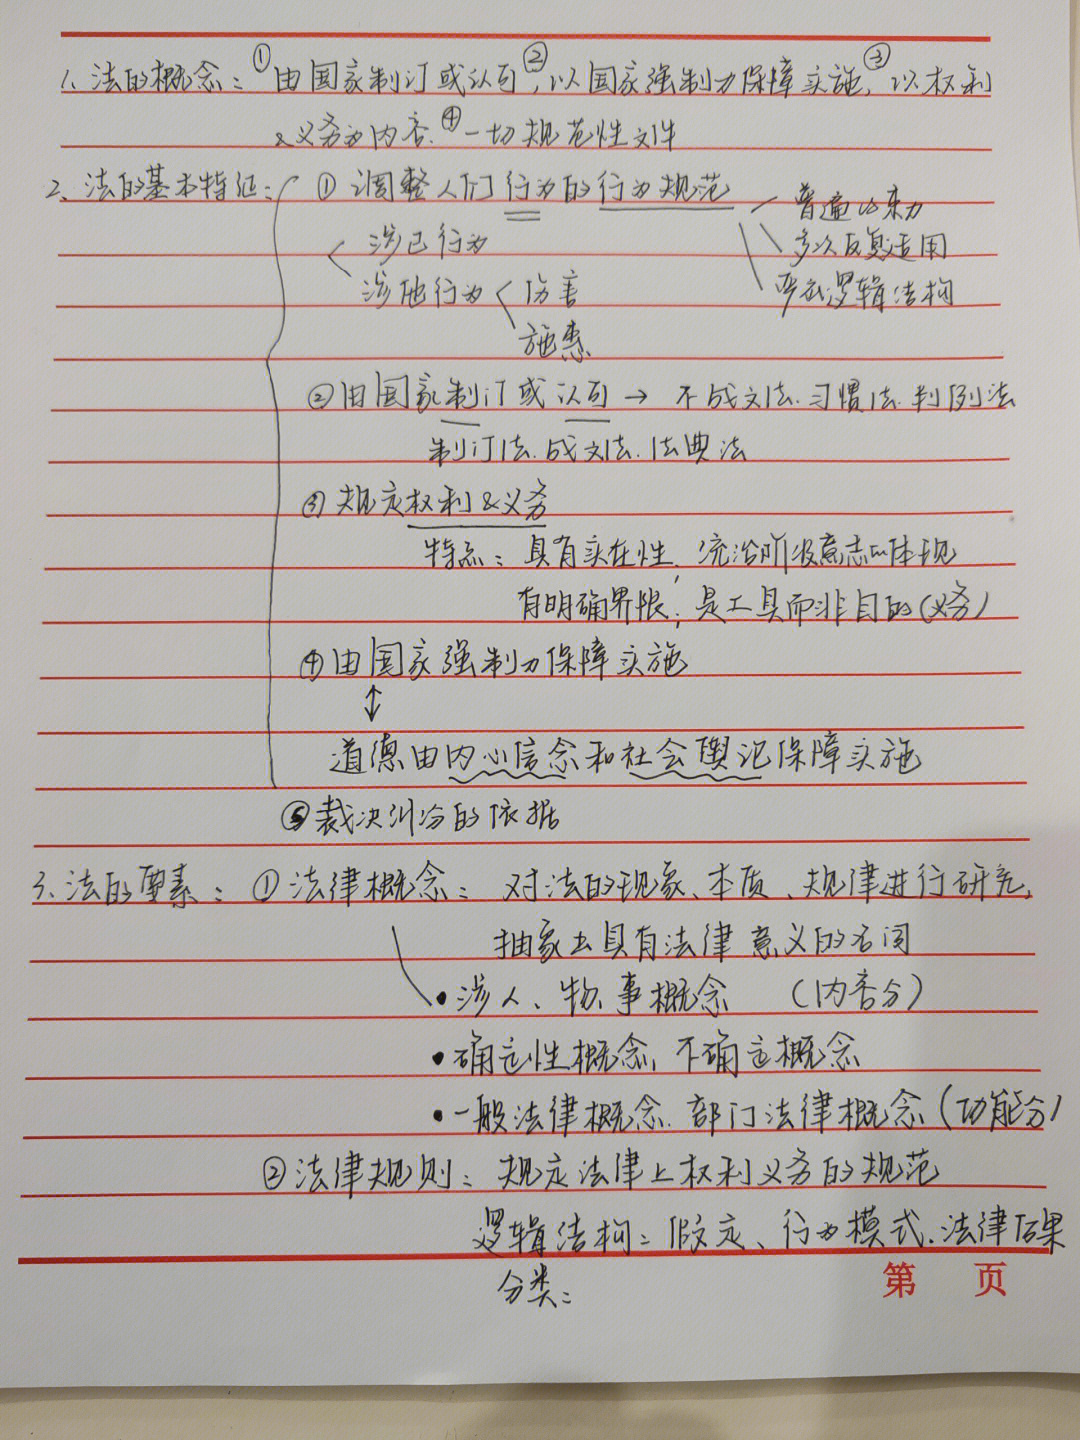 1、法的概念：①由国家制订或认可，②以国家强制力保障实施，③以权利
&义务为内容.④一切规范性文件
2、法的基本特征：①调整人们行为的行为规范 普遍约束力
涉己行为 多次反复适用
涉他行为 伤害 严密逻辑结构
施惠
②由国家制订或认可→不成文法.习惯法.判例法
制订法.成文法.法典法
③规定权利&义务
特点：具有实在性，统治阶级意志的体现
有明确界限；是工具而非目的(义务)
④由国家强制力保障实施
↕
道德由内心信念和社会舆论保障实施
⑤裁决纠纷的依据
3、法的要素：①法律概念：对法的现象、本质、规律进行研究，
抽象出具有法律意义的名词
•涉人、物、事概念（内容分）
•确定性概念，不确定概念
•一般法律概念.部门法律概念（功能分）
②法律规则：规定法律上权利义务的规范
逻辑结构：假定、行为模式.法律后果
第 页
分类：